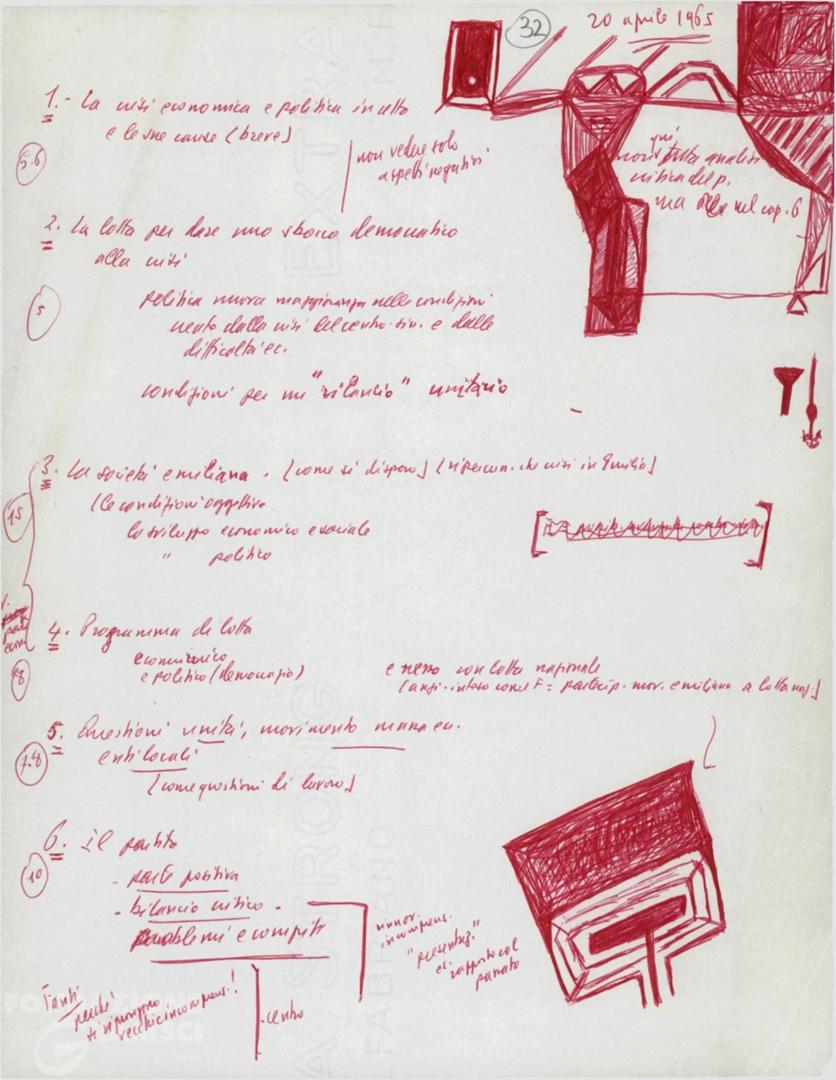 32
20 aprile 1965
1. - La crisi economica e politica in atto
e le sue cause (breve)
5-6
non vedere solo
aspetti negativi
qui
analisi
critica del p.
ma nel cap. 6
2. La lotta per dare uno sbocco democratico
alla crisi
5
politica nuova maggioranza nelle condizioni
create dalla crisi del centro-sin. e dalle
difficoltà ec.
condizioni per un "rilancio" unitario
3. La società emiliana. (come si dispone) (ripercuss. che crisi in Emilia)
15
(le condizioni oggettive
lo sviluppo economico e sociale
" politico
4. Programma di lotta
economico
e politico (democrazia)
8
e nesso con lotta nazionale
(anzi - inteso come = partecip. mov. emiliano a lotta naz.)
5. Questioni unità, movimento massa ecc.
enti locali
7-8
(come questioni di lavoro)
6. Il partito
10
- parte positiva
- bilancio critico -
problemi e compiti
"presentaz."
e rapporto col
passato
Fanti
perché
si ripropongono
vecchie incompens.!
centro
FONDAZIONE
GRAMSCI
EXTRA
STRONG
FABRIANO